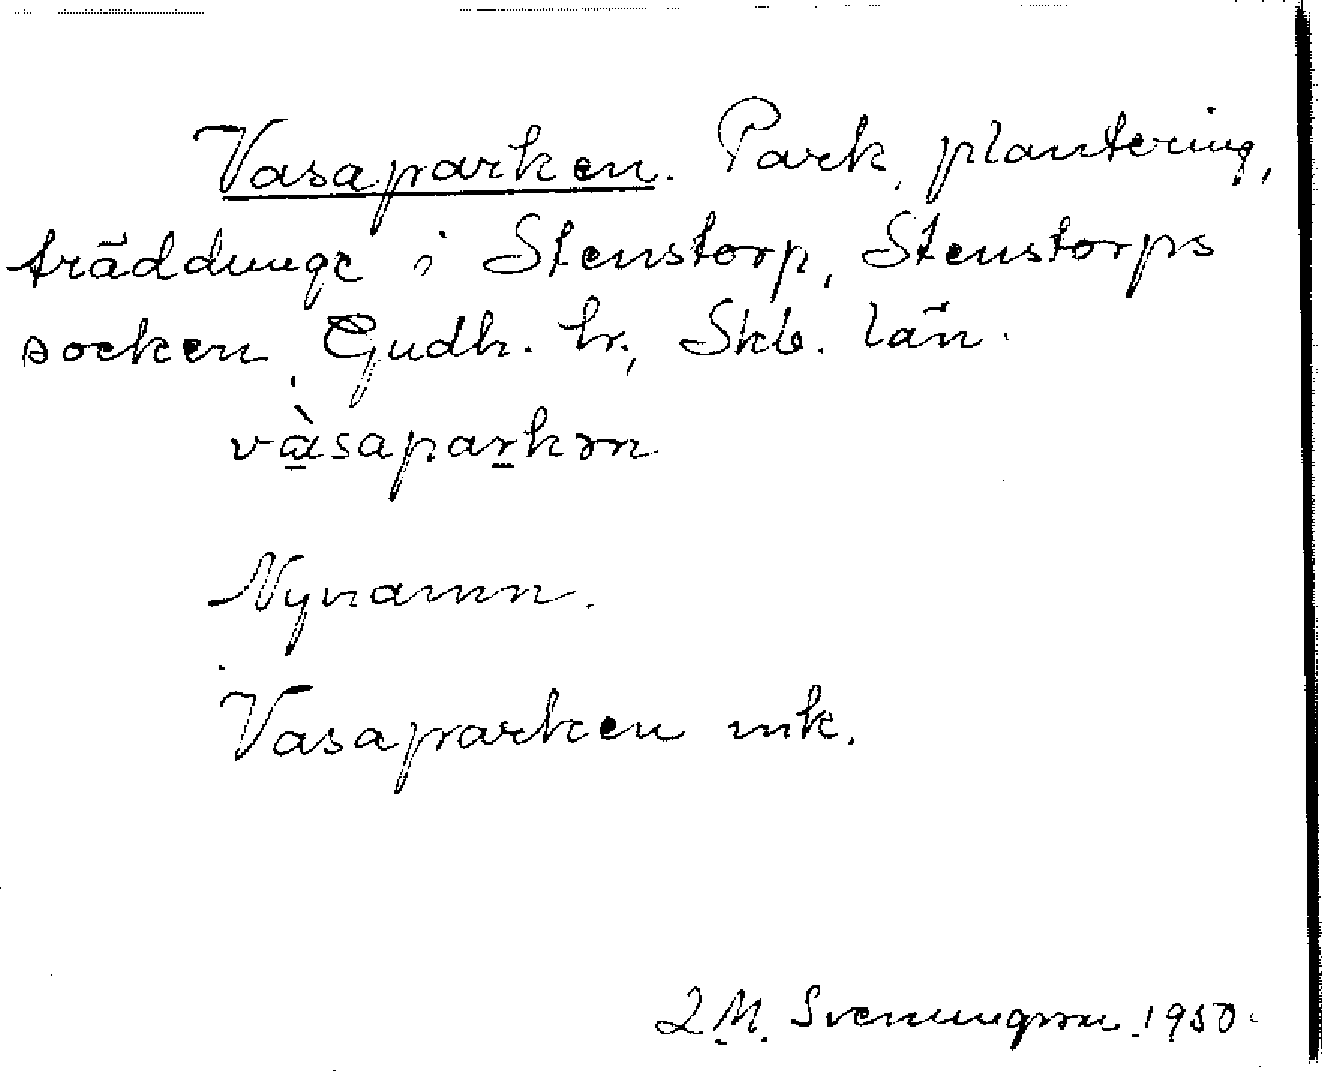 Vasaparken. Park, plantering,
träddunge i Stenstorp, Stenstorps
socken, Gudh. hr., Skb. län.
và̱sapaṟkən
Nynamn.
Vasaparken mk.
L. M. Svenungsson 1950.